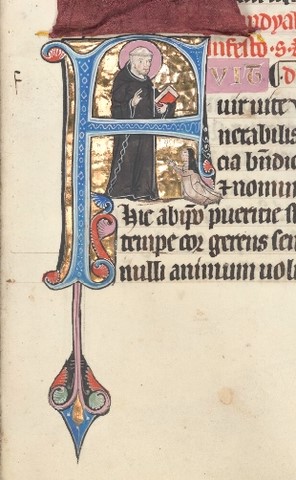 ndya
In festo · s ·
F VIT d
F
uir uite v
nerabilis
cia bn̄dic
⁊ nomin
hic ab ip̄o puericie s
temp̄e cor gerens sen
nulli animum uol